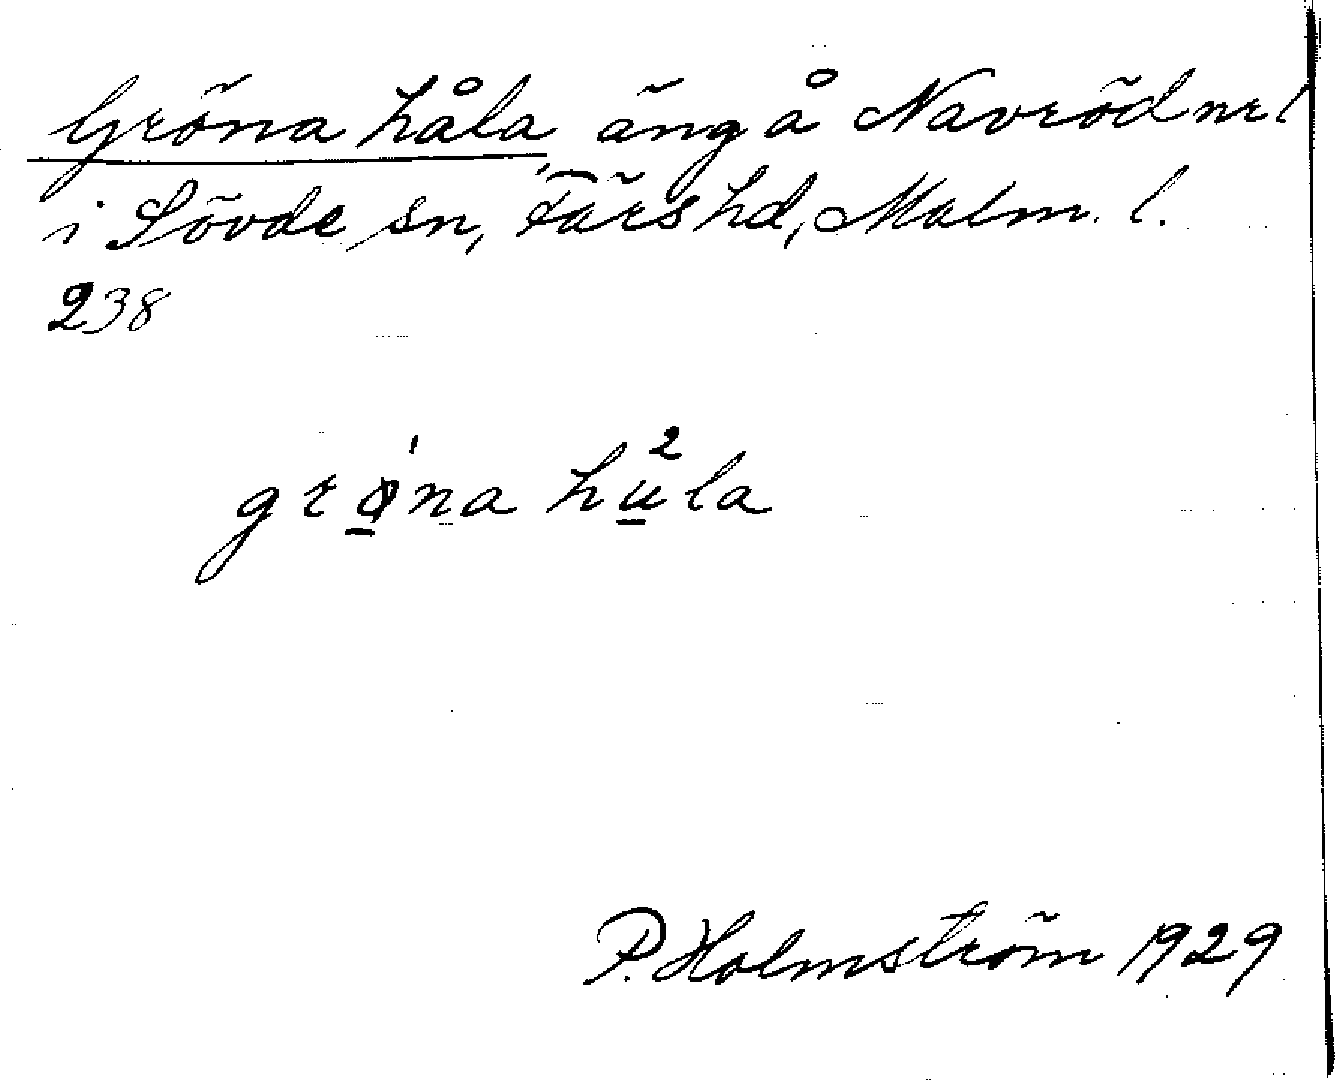 Gröna håla, äng å Navröd nr 1
i Sövde sn, Färs hd, Malm. l.
238
grǿ̱na hu̱²la
P. Holmström 1929